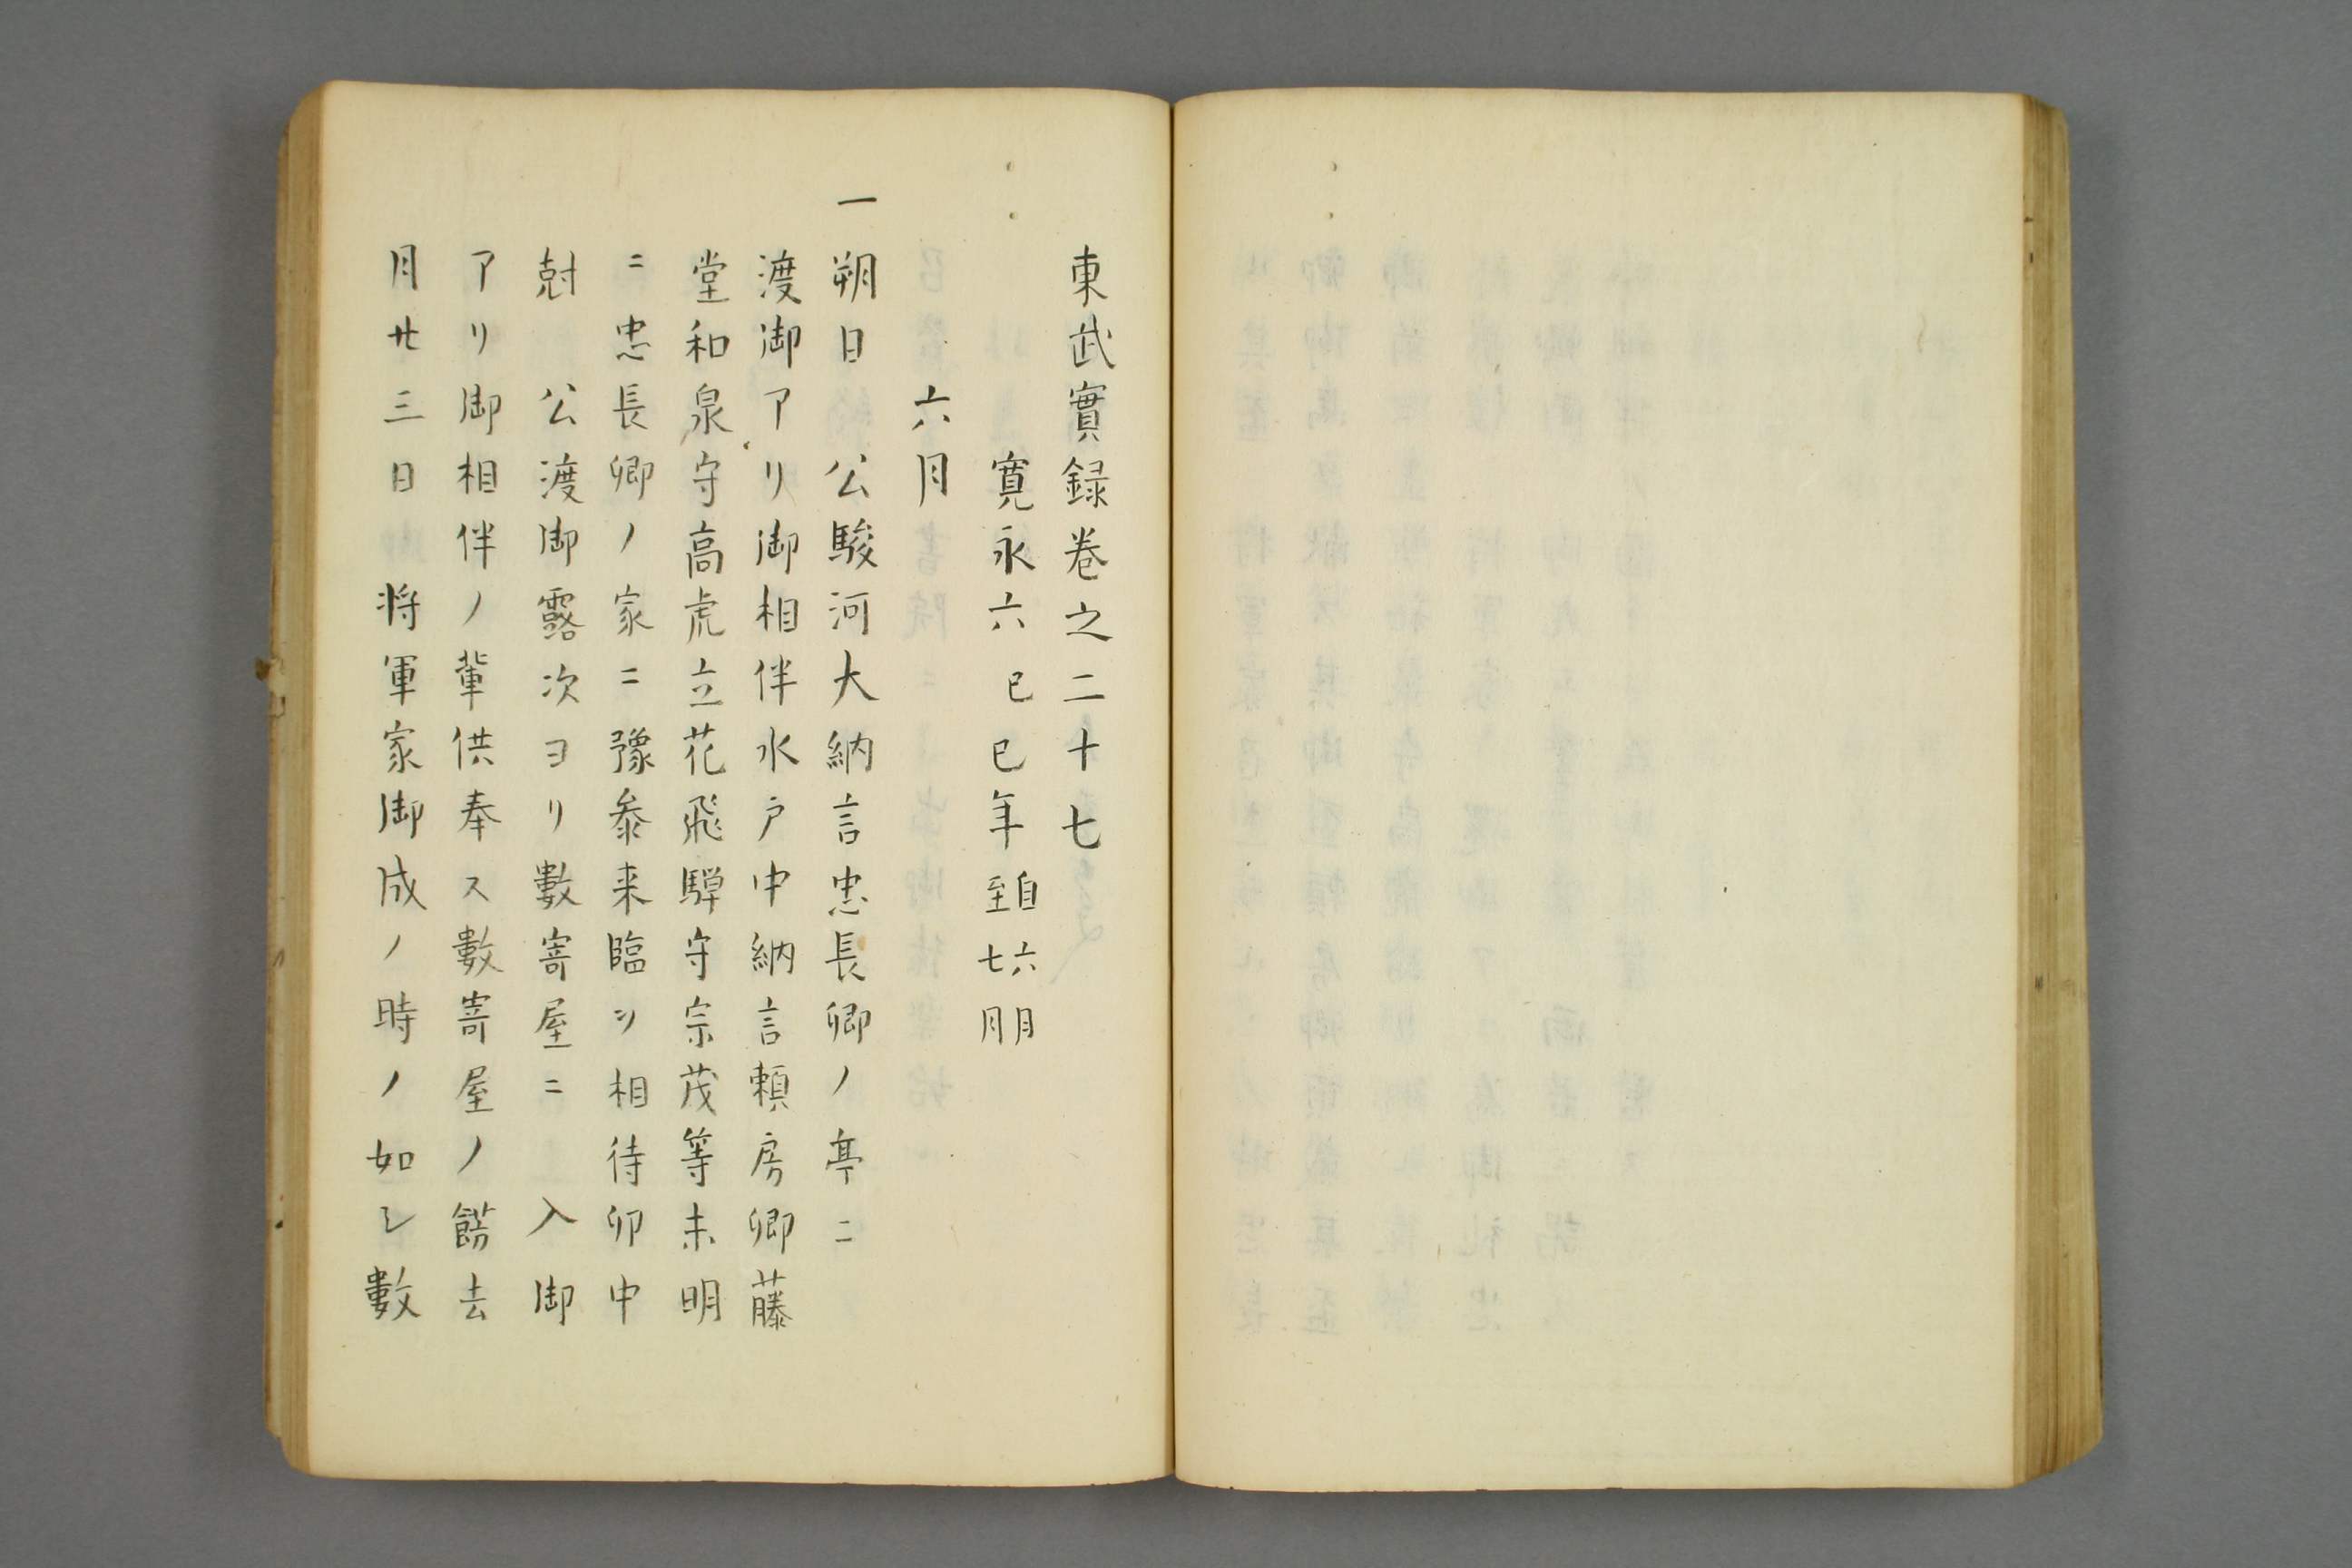 東武實録巻之二十七
寛永六己巳年自六月至七月
六月
一朔日　公駿河大納言忠長卿ノ亭ニ
渡御アリ御相伴水戸中納言頼房卿藤
堂和泉守高虎立花飛騨守宗茂等未明
ニ忠長卿ノ家ニ豫参来臨ソ相待卯中
尅　公渡御露次ヨリ數寄屋ニ　入御
アリ御相伴ノ輩供奉ス數寄屋ノ餝去
月廿三日　将軍家御成ノ時ノ如シ數